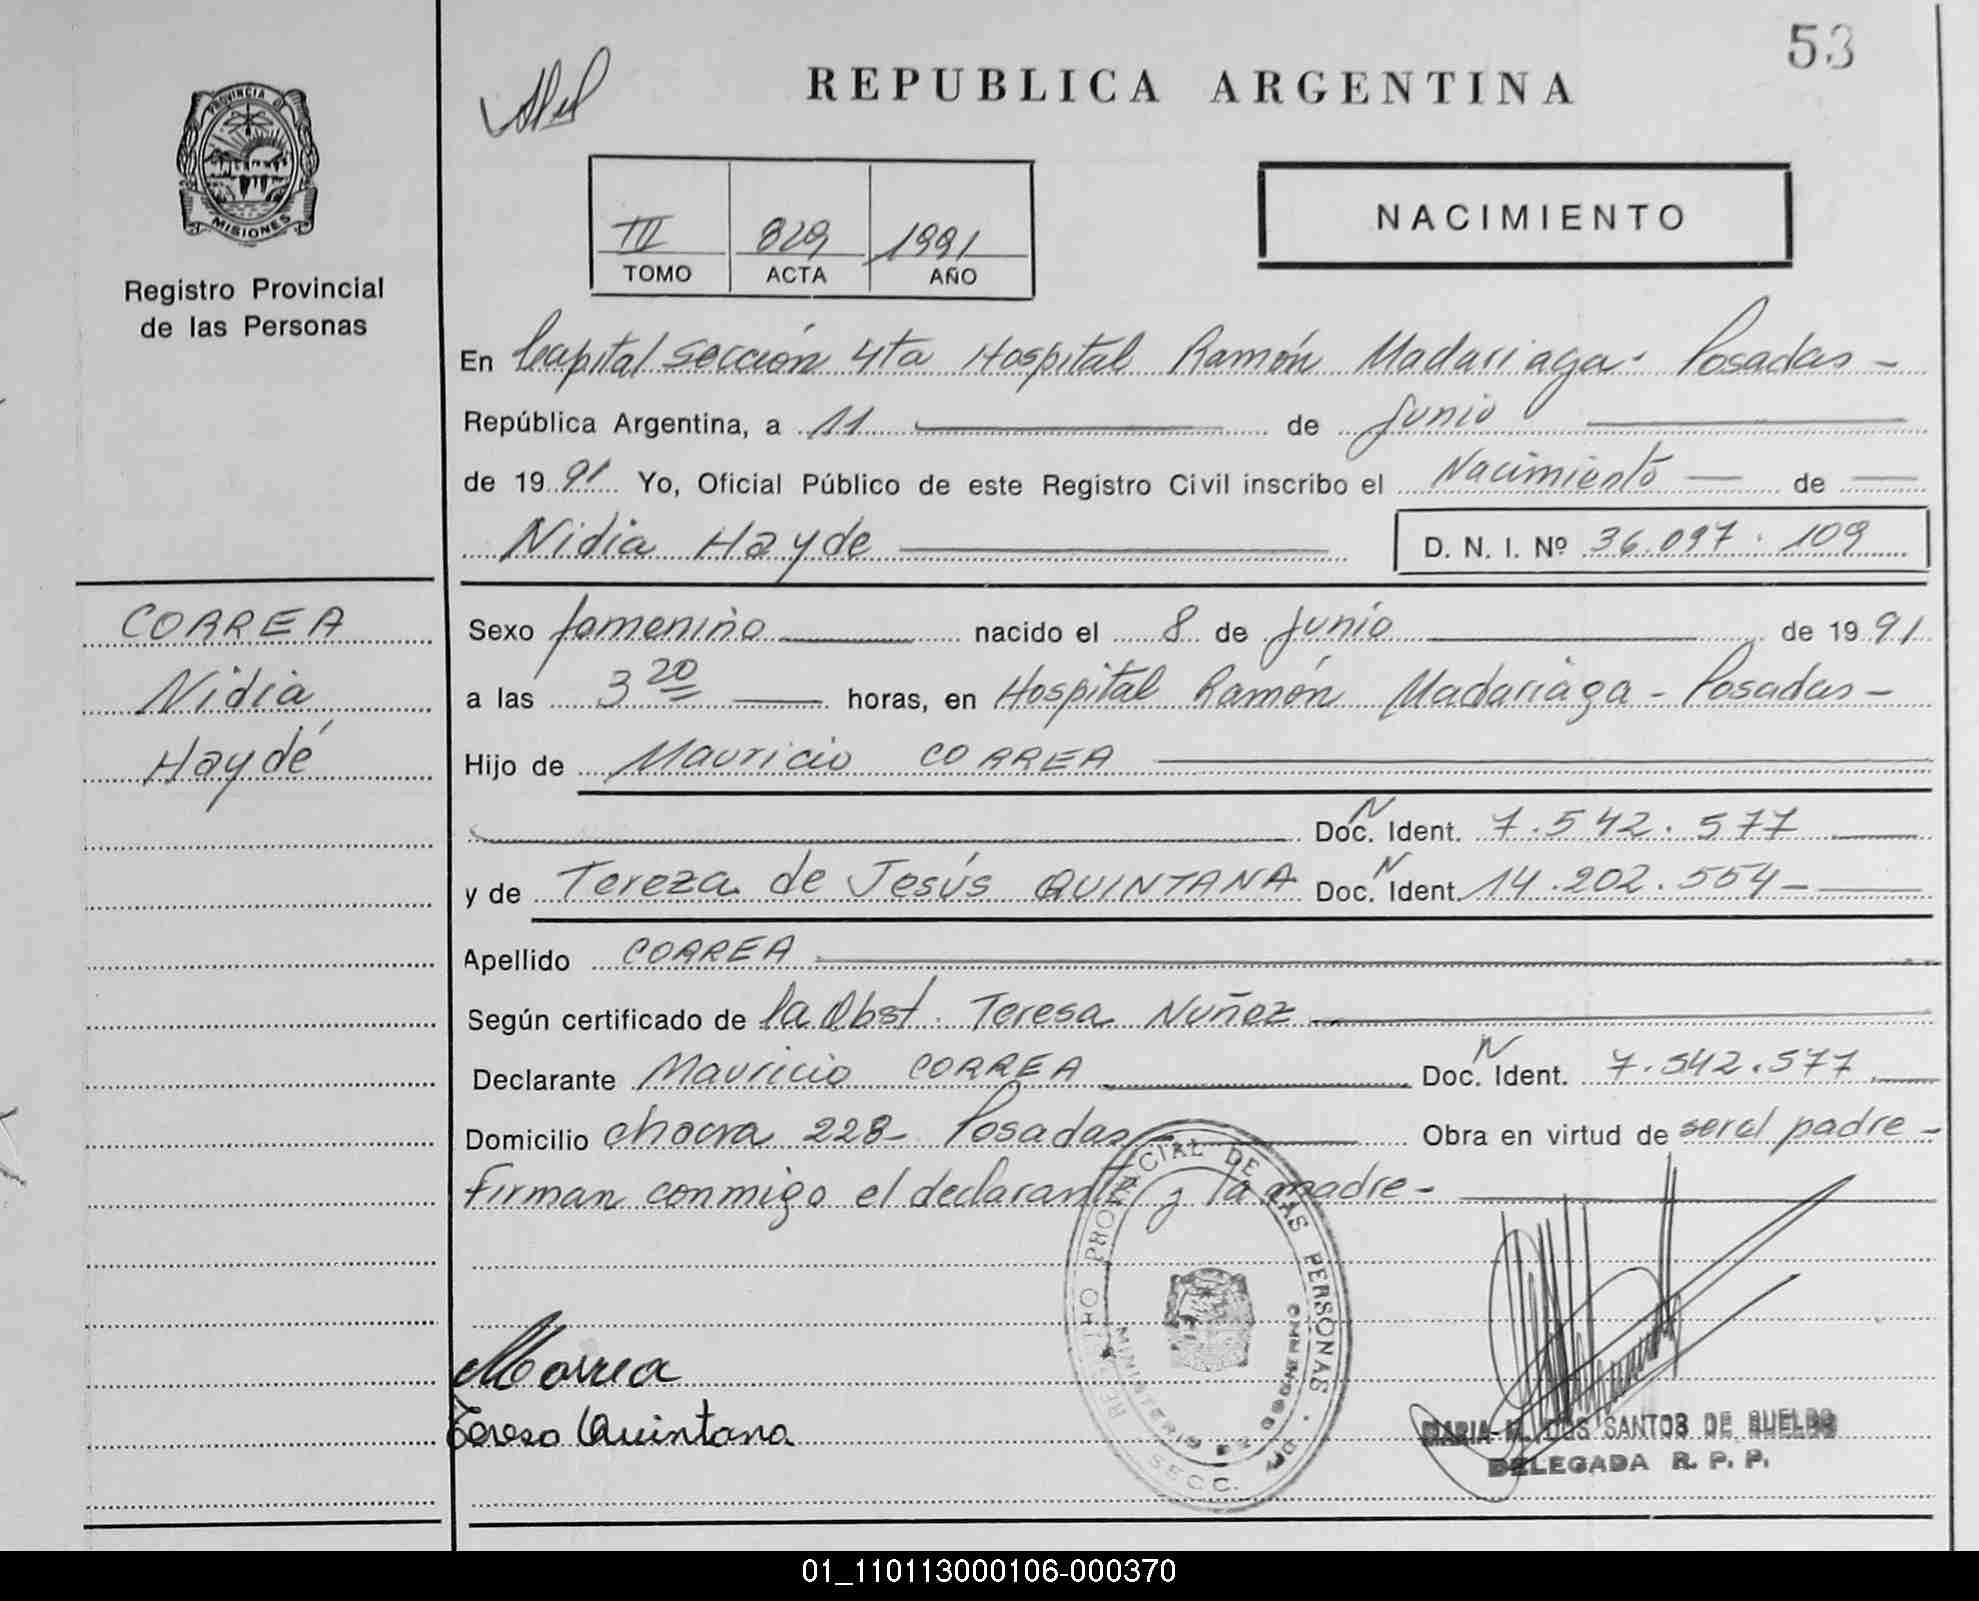 53
REPUBLICA ARGENTINA
PROVINCIA DE
MISIONES
Registro Provincial
de las Personas
III 829 1991
TOMO ACTA AÑO
NACIMIENTO
En Capital sección 4ta Hospital Ramón Madariaga - Posadas -
República Argentina, a 11 de Junio
de 1991 Yo, Oficial Público de este Registro Civil inscribo el Nacimiento de
Nidia Hayde D. N. I. Nº 36.097.109
CORREA
Nidia
Haydé
Sexo femenino nacido el 8 de Junio de 1991
a las 3 20 horas, en Hospital Ramón Madariaga - Posadas -
Hijo de Mauricio CORREA
Doc. N Ident. 7.542.577
y de Tereza de Jesús QUINTANA Doc. N Ident. 14.202.554 -
Apellido CORREA
Según certificado de la Obst. Teresa Nuñez
Declarante Mauricio CORREA Doc. N Ident. 7.542.577
Domicilio chacra 228 - Posadas - Obra en virtud de ser el padre -
Firman conmigo el declarante y la madre -
REGISTRO PROVINCIAL DE LAS PERSONAS
MINISTERIO DE GOBIERNO
SECC.
MCorrea
Teresa Quintana
MARIA M. DOS SANTOS DE
DELEGADA R. P. P.
01_110113000106-000370